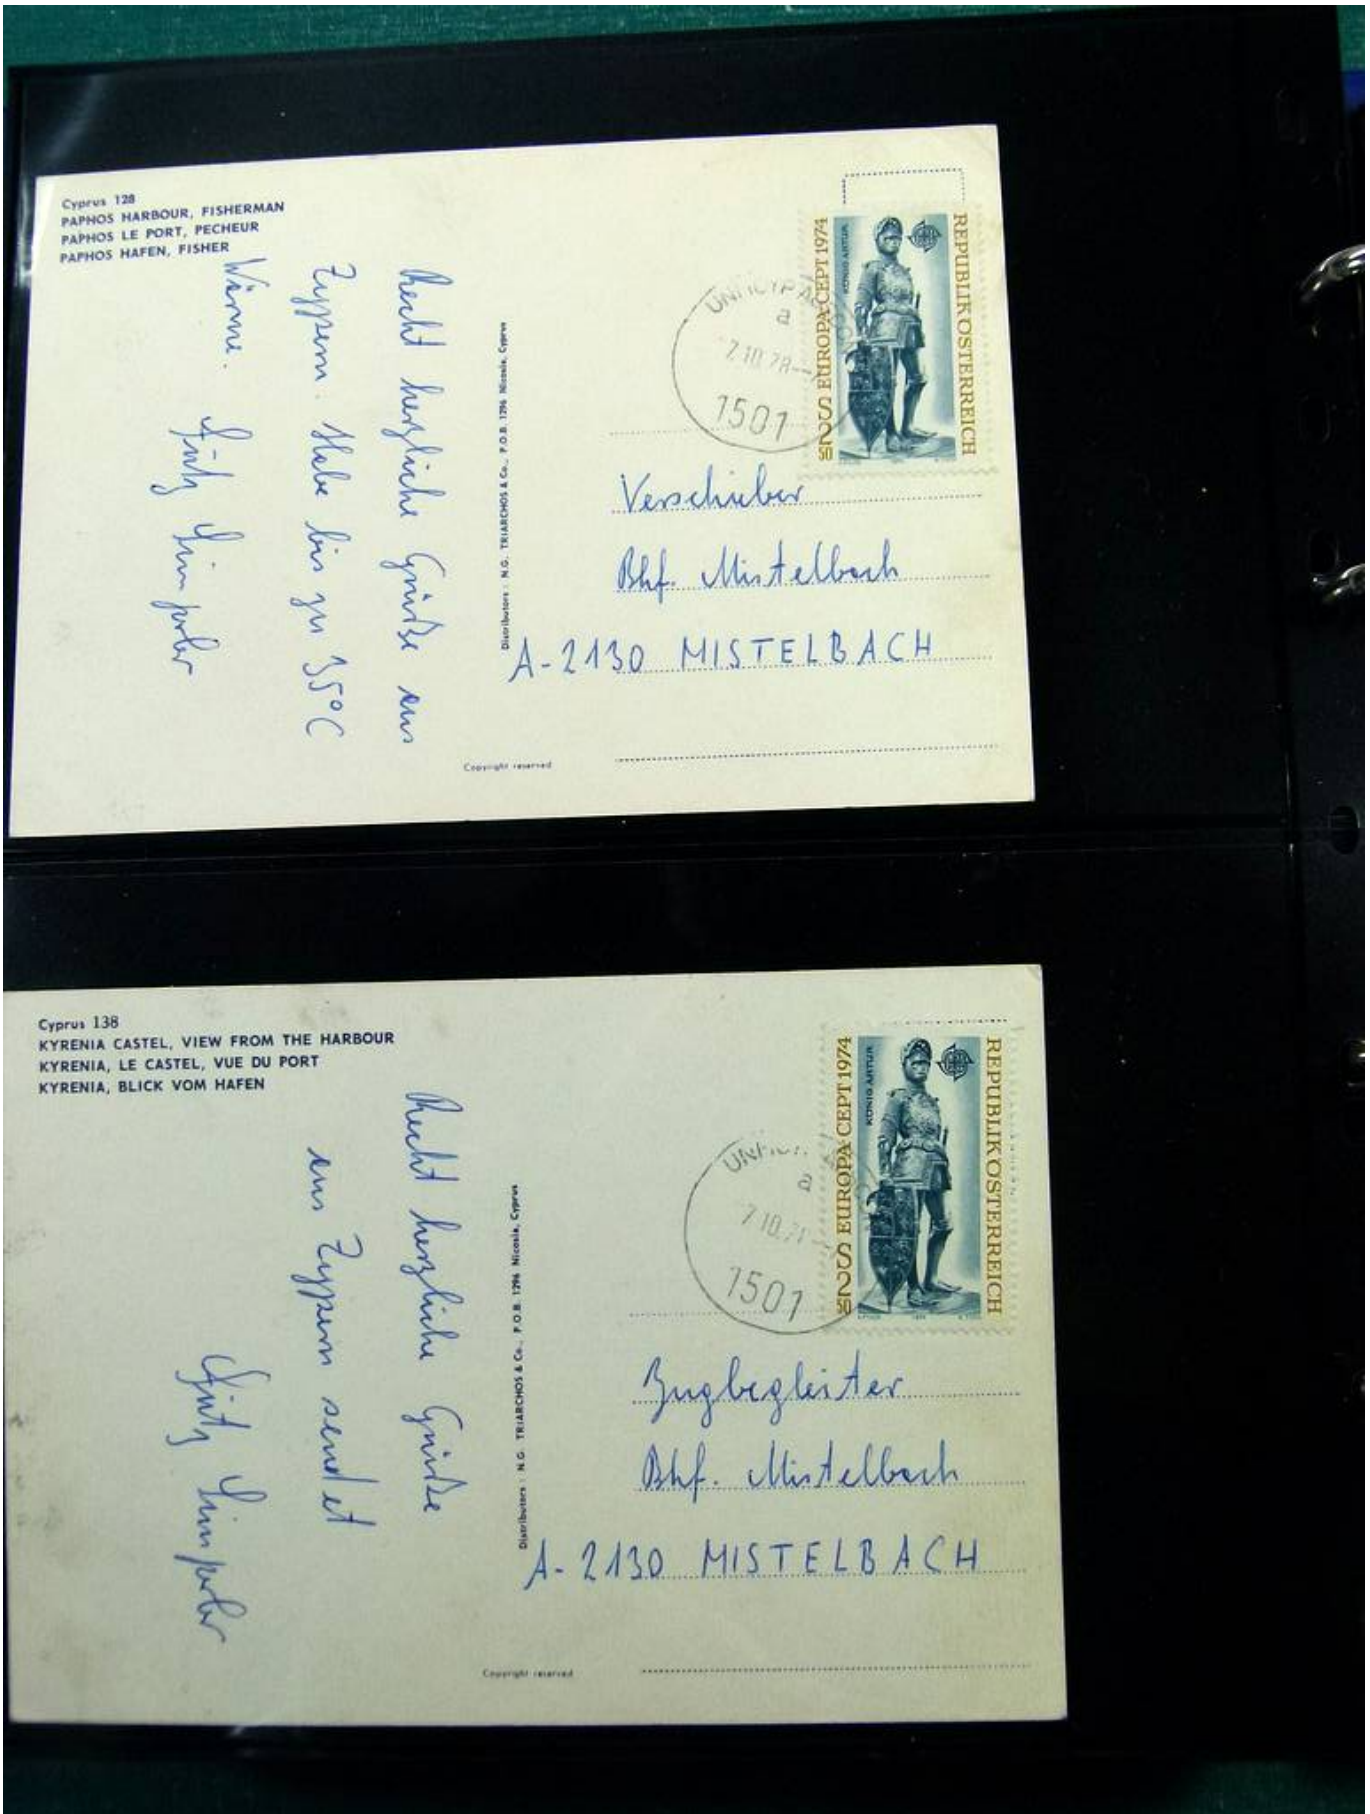 Cyprus 128
PAPHOS HARBOUR, FISHERMAN
PAPHOS LE PORT, PECHEUR
PAPHOS HAFEN, FISHER
Recht herzliche Grüße aus
Zypern. Habe bis zu 35°C
Wärme.
Distributors : N.G. TRIARCHOS & Co., P.O.B. 1296 Nicosia, Cyprus
Copyright reserved
REPUBLIK OSTERREICH
KÖNIG ARTUR
S2 50 EUROPA CEPT 1974
a
7.10.78
1501
Verschieber
Bhf. Mistelbach
A-2130 MISTELBACH
Cyprus 138
KYRENIA CASTEL, VIEW FROM THE HARBOUR
KYRENIA, LE CASTEL, VUE DU PORT
KYRENIA, BLICK VOM HAFEN
Recht herzliche Grüße
aus Zypern sendet
Distributors : N.G. TRIARCHOS & Co., P.O.B. 1296 Nicosia, Cyprus
Copyright reserved
REPUBLIK OSTERREICH
KÖNIG ARTUR
S2 50 EUROPA CEPT 1974
a
1501
Zugbegleiter
Bhf. Mistelbach
A-2130 MISTELBACH